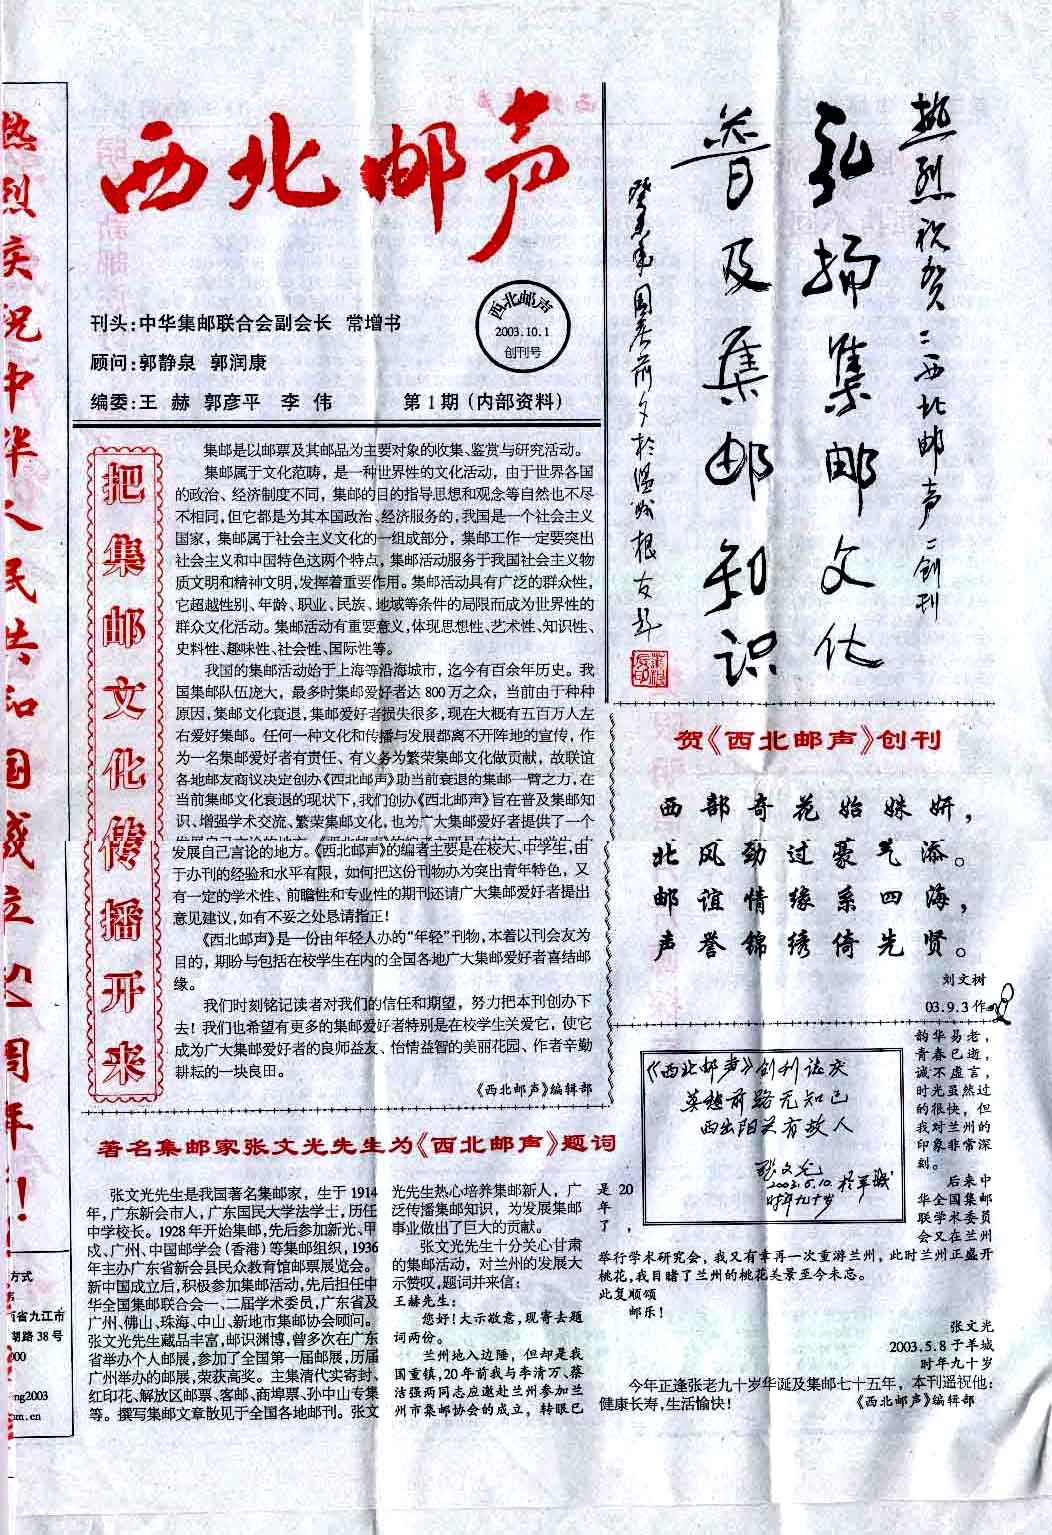 西北邮声
刊头:中华集邮联合会副会长 常增书
顾问:郭静泉 郭润康
编委:王 赫 郭彦平 李 伟 第1期(内部资料)
西北邮声
2003.10.1
创刊号
热烈祝贺《西北邮声》创刊
弘扬集邮文化
普及集邮知识
癸未年国庆前夕于
把集邮文化传播开来
集邮是以邮票及其邮品为主要对象的收集、鉴赏与研究活动。
集邮属于文化范畴，是一种世界性的文化活动，由于世界各国
的政治、经济制度不同，集邮的目的指导思想和观念等自然也不尽
不相同,但它都是为其本国政治、经济服务的,我国是一个社会主义
国家，集邮属于社会主义文化的一组成部分，集邮工作一定要突出
社会主义和中国特色这两个特点，集邮活动服务于我国社会主义物
质文明和精神文明,发挥着重要作用。集邮活动具有广泛的群众性,
它超越性别、年龄、职业、民族、地域等条件的局限而成为世界性的
群众文化活动。集邮活动有重要意义,体现思想性、艺术性、知识性、
史料性、趣味性、社会性、国际性等。
我国的集邮活动始于上海等沿海城市，迄今有百余年历史。我
国集邮队伍庞大，最多时集邮爱好者达800万之众，当前由于种种
原因,集邮文化衰退,集邮爱好者损失很多,现在大概有五百万人左
右爱好集邮。任何一种文化和传播与发展都离不开阵地的宣传，作
为一名集邮爱好者有责任、有义务为繁荣集邮文化做贡献，故联谊
各地邮友商议决定创办《西北邮声》助当前衰退的集邮一臂之力,在
当前集邮文化衰退的现状下,我们创办《西北邮声》旨在普及集邮知
识、增强学术交流、繁荣集邮文化,也为广大集邮爱好者提供了一个
发展自己言论的地方。《西北邮声》的编者主要是在校大、中学生,由
于办刊的经验和水平有限，如何把这份刊物办为突出青年特色，又
有一定的学术性、前瞻性和专业性的期刊还请广大集邮爱好者提出
意见建议,如有不妥之处恳请指正!
《西北邮声》是一份由年轻人办的“年轻”刊物,本着以刊会友为
目的，期盼与包括在校学生在内的全国各地广大集邮爱好者喜结邮
缘。
我们时刻铭记读者对我们的信任和期望，努力把本刊创办下
去！我们也希望有更多的集邮爱好者特别是在校学生关爱它，使它
成为广大集邮爱好者的良师益友、怡情益智的美丽花园、作者辛勤
耕耘的一块良田。
《西北邮声》编辑部
贺《西北邮声》创刊
西部奇花始姝妍,
北风劲过豪气添。
邮谊情缘系四海,
声誉锦绣倚先贤。
刘文树
03.9.3作
著名集邮家张文光先生为《西北邮声》题词
张文光先生是我国著名集邮家，生于1914
年,广东新会市人,广东国民大学法学士,历任
中学校长。1928年开始集邮,先后参加新光、甲
戍、广州、中国邮学会(香港)等集邮组织，1936
年主办广东省新会县民众教育馆邮票展览会。
新中国成立后,积极参加集邮活动,先后担任中
华全国集邮联合会一、二届学术委员,广东省及
广州、佛山、珠海、中山、新地市集邮协会顾问。
张文光先生藏品丰富,邮识渊博,曾多次在广东
省举办个人邮展,参加了全国第一届邮展,历届
广州举办的邮展,荣获高奖。主集清代实寄封、
红印花、解放区邮票、客邮、商埠票、孙中山专集
等。撰写集邮文章散见于全国各地邮刊。张文
光先生热心培养集邮新人，广
泛传播集邮知识，为发展集邮
事业做出了巨大的贡献。
张文光先生十分关心甘肃
的集邮活动，对兰州的发展大
示赞叹,题词并来信:
王赫先生:
您好!大示敬意,现寄去题
词两份。
兰州地入边陲，但却是我
国重镇,20年前我与李清万、蔡
洁强两同志应邀赴兰州参加兰
州市集邮协会的成立，转眼已
是20
年
了,
《西北邮声》创刊志庆
莫愁前路无知己
西出阳关有故人
张文光
2003.5.10.于羊城
时年九十岁
韵华易老,
青春已逝,
诚不虚言,
时光虽然过
的很快，但
我对兰州的
印象非常深
刻。
后来中
华全国集邮
联学术委员
会又在兰州
举行学术研究会，我又有幸再一次重游兰州，此时兰州正盛开
桃花,我目睹了兰州的桃花美景至今未忘。
此复顺颂
邮乐!
张文光
2003.5.8于羊城
时年九十岁
今年正逢张老九十岁华诞及集邮七十五年，本刊遥祝他:
健康长寿,生活愉快! 《西北邮声》编辑部
热烈庆祝中华人民共和国成立54周年!
方式
西省九江市
湖路38号
000
ng2003
om.cn